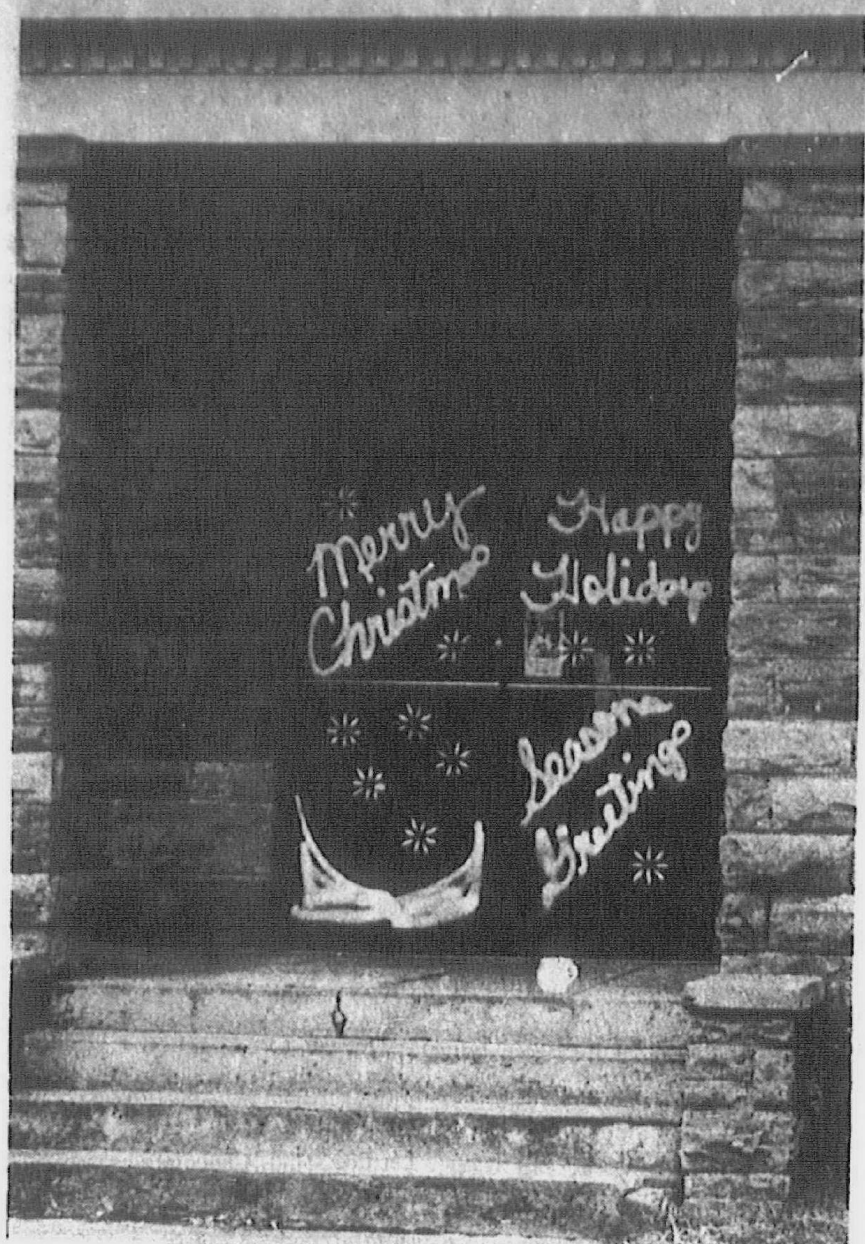 Merry
Christmas
Happy
Holidays
Seasons
Greetings